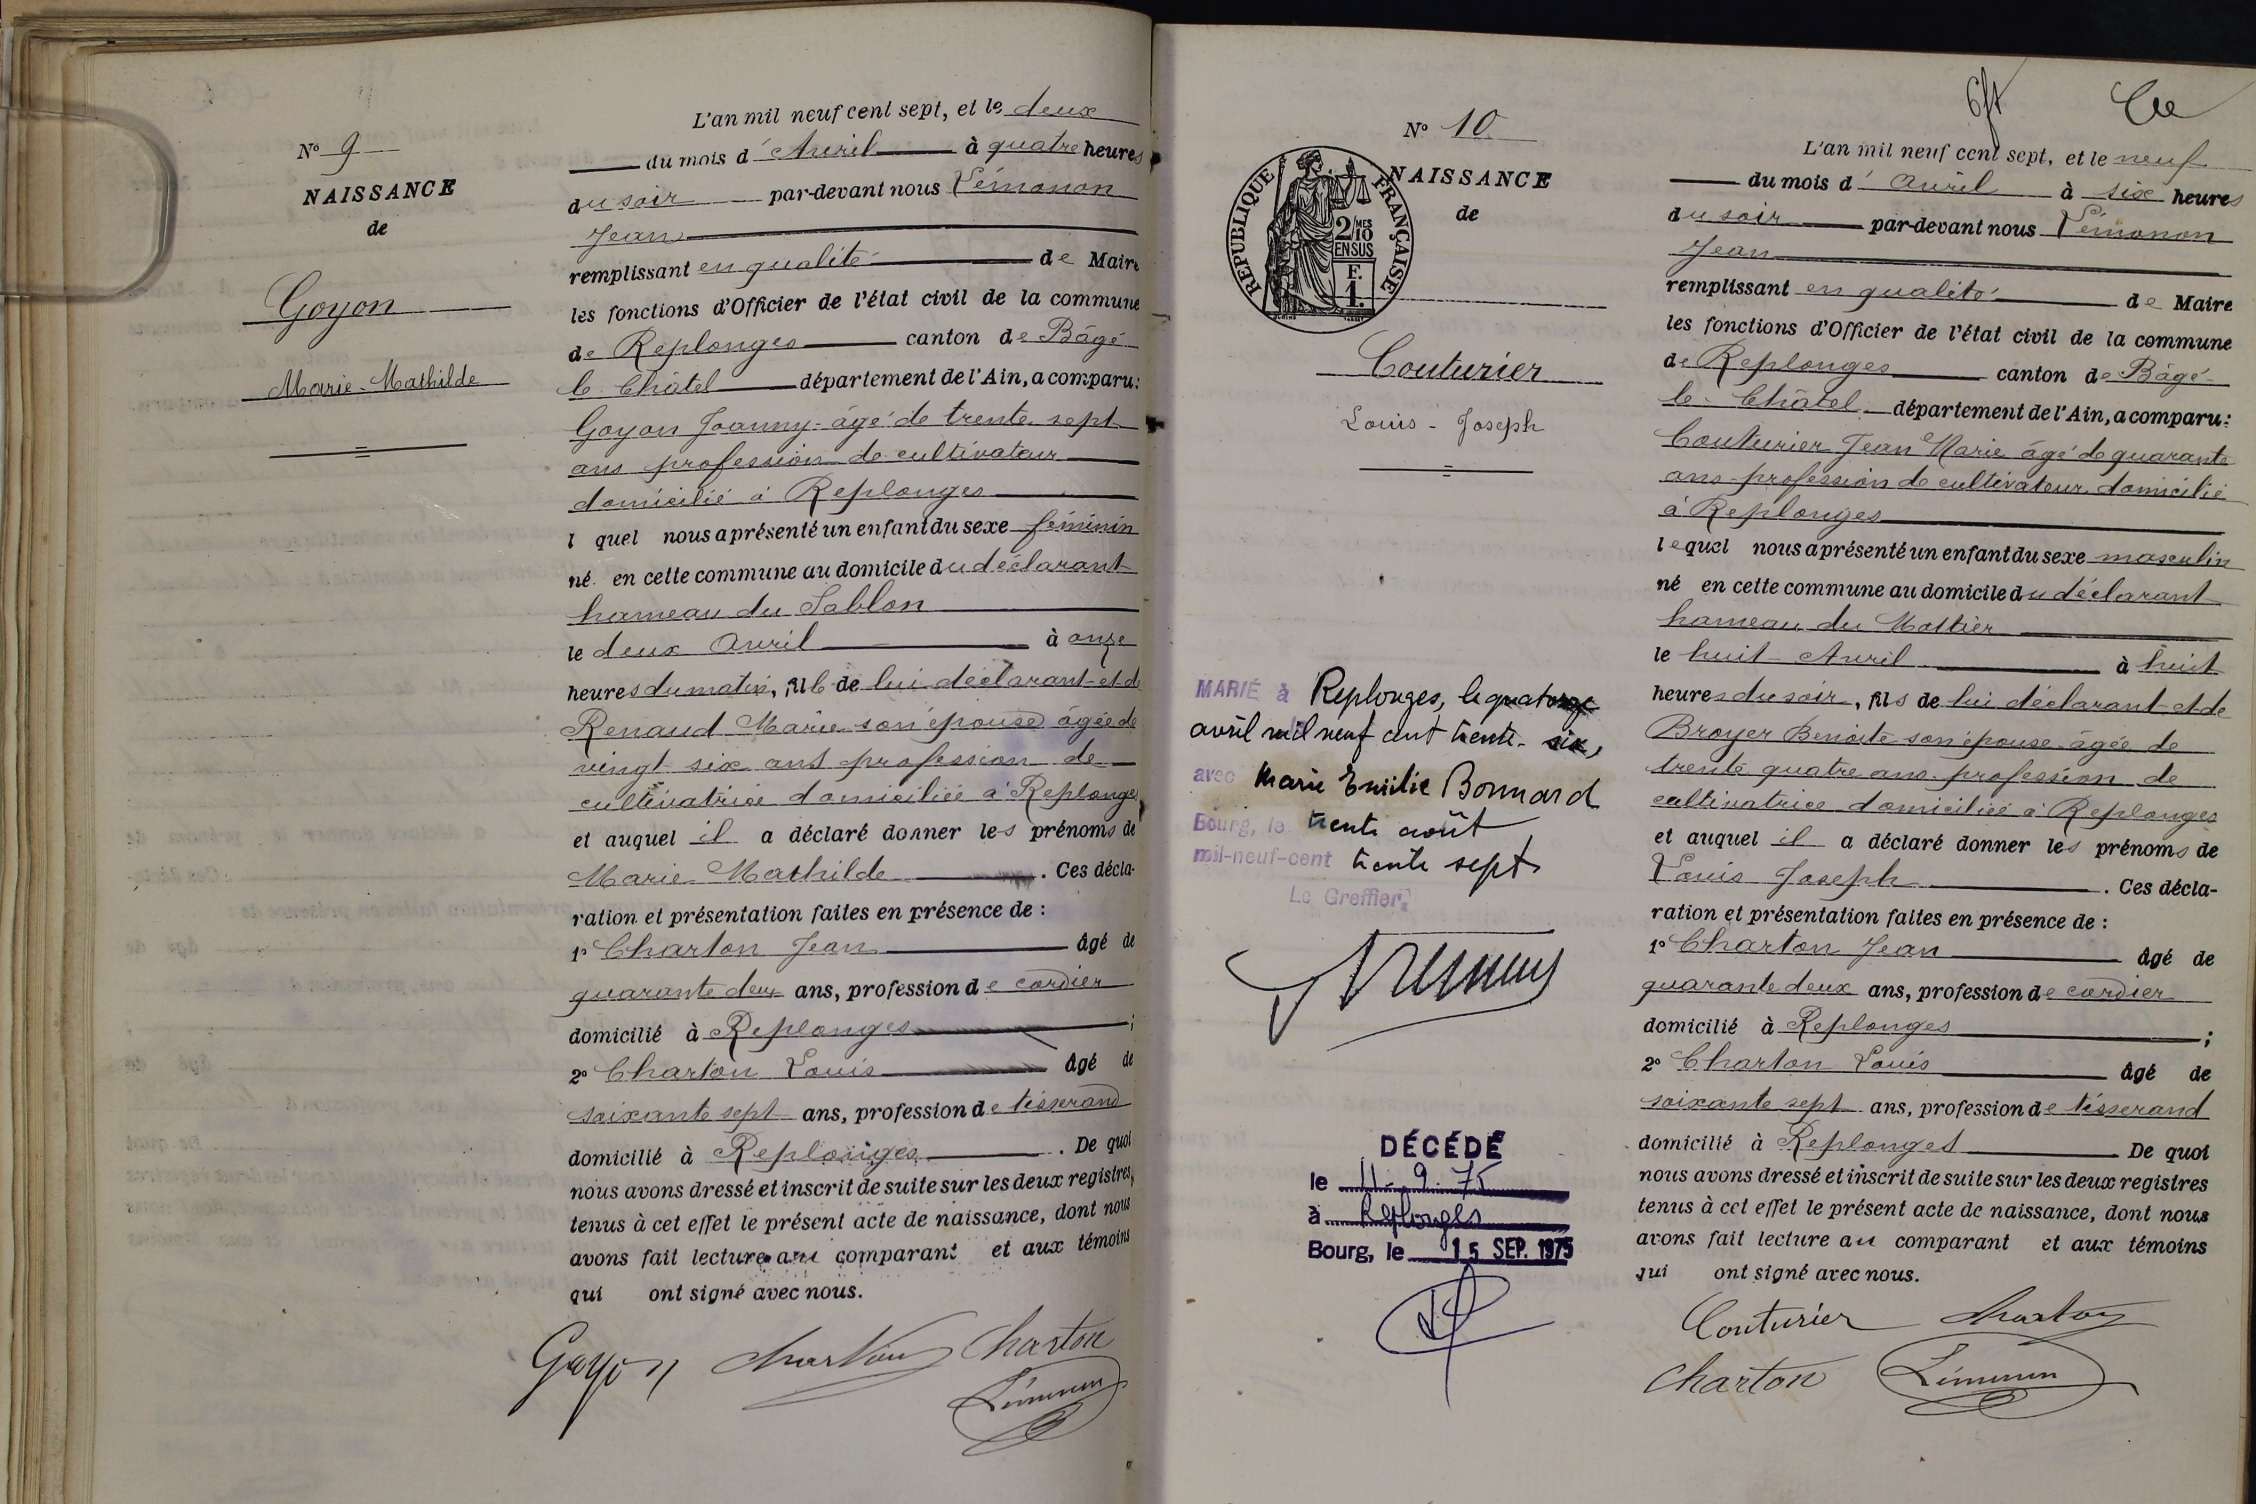 N° 9
NAISSANCE
de
Goyon
Marie-Mathilde
L'an mil neuf cent sept, et le deux
du mois d'Avril à quatre heures
du soir par-devant nous Lémonon
Jean
remplissant en qualité de Maire
les fonctions d'Officier de l'état civil de la commune
de Replonges canton de Bâgé
le Châtel département de l'Ain, a comparu:
Goyon Joanny âgé de trente sept
ans profession de cultivateur
domicilié à Replonges
l quel nous a présenté un enfant du sexe féminin
né en cette commune au domicile du déclarant
hameau du Sablon
le deux Avril à onze
heures du matin, fille de lui déclarant et de
Renaud Marie son épouse âgée de
vingt six ans profession de
cultivatrice domiciliée à Replonges
et auquel il a déclaré donner les prénoms de
Marie Mathilde. Ces décla-
ration et présentation faites en présence de :
1° Charton Jean âgé de
quarante deux ans, profession de cordier
domicilié à Replonges ;
2° Charton Louis âgé de
soixante sept ans, profession de tisserand
domicilié à Replonges. De quoi
nous avons dressé et inscrit de suite sur les deux registres,
tenus à cet effet le présent acte de naissance, dont nous
avons fait lecture au comparant et aux témoins
qui ont signé avec nous.
Goyon Charton Charton
Lémonon
N° 10
NAISSANCE
de
RÉPUBLIQUE FRANÇAISE
2/MES
10
EN SUS
F.
1.
Couturier
Louis - Joseph
MARIÉ à Replonges, le quatorze
avril mil neuf cent trente-six,
avec Marie Emilie Bonnard
Bourg, le trente août
mil-neuf-cent trente sept
Le Greffier,
DÉCÉDÉ
le 11-9-75
à Replonges
Bourg, le 15 SEP. 1975
L'an mil neuf cent sept, et le neuf
du mois d'avril à six heures
du soir par-devant nous Lémonon
Jean
remplissant en qualité de Maire
les fonctions d'Officier de l'état civil de la commune
de Replonges canton de Bâgé
le Châtel département de l'Ain, a comparu:
Couturier Jean Marie âgé de quarante
ans profession de cultivateur domicilié
à Replonges
lequel nous a présenté un enfant du sexe masculin
né en cette commune au domicile du déclarant
hameau du Mottier
le huit Avril à huit
heures du soir, fils de lui déclarant et de
Broyer Benoite son épouse âgée de
trente quatre ans profession de
cultivatrice domiciliée à Replonges
et auquel il a déclaré donner les prénoms de
Louis Joseph. Ces décla-
ration et présentation faites en présence de :
1° Charton Jean âgé de
quarante deux ans, profession de cordier
domicilié à Replonges ;
2° Charton Louis âgé de
soixante sept ans, profession de tisserand
domicilié à Replonges De quoi
nous avons dressé et inscrit de suite sur les deux registres
tenus à cet effet le présent acte de naissance, dont nous
avons fait lecture au comparant et aux témoins
qui ont signé avec nous.
Couturier Charton
Charton Lémonon